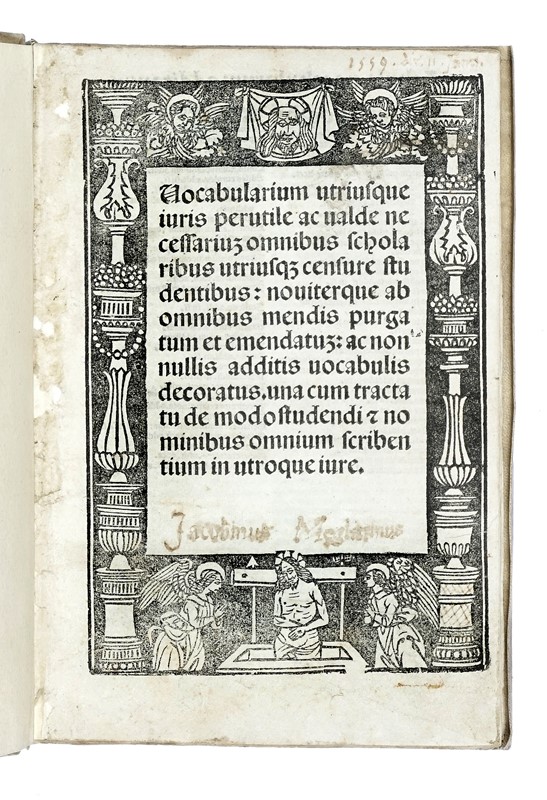 1559.
Uocabularium utriuſque
iuris perutile ac ualde ne
ceſſariuꝫ omnibus ſchola
ribus utriuſqꝫ cenſure ſtu
dentibus: nouiterque ab
omnibus mendis purga
tum et emendatuꝫ: ac non
nullis additis uocabulis
decoratus.una cum tracta
tu de modo ſtudendi ⁊ no
minibus omnium ſcriben
tium in utroque iure.
Jacobinus